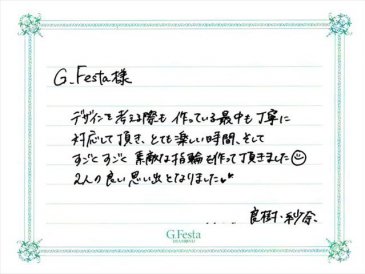 G.Festa様
デザインを考える際も作っている最中も丁寧に
対応して頂き、とても楽しい時間、そして
すごくすごく素敵な指輪を作って頂きました
2人の良い思い出となりました
良樹・紗谷
G.Festa
DIAMOND